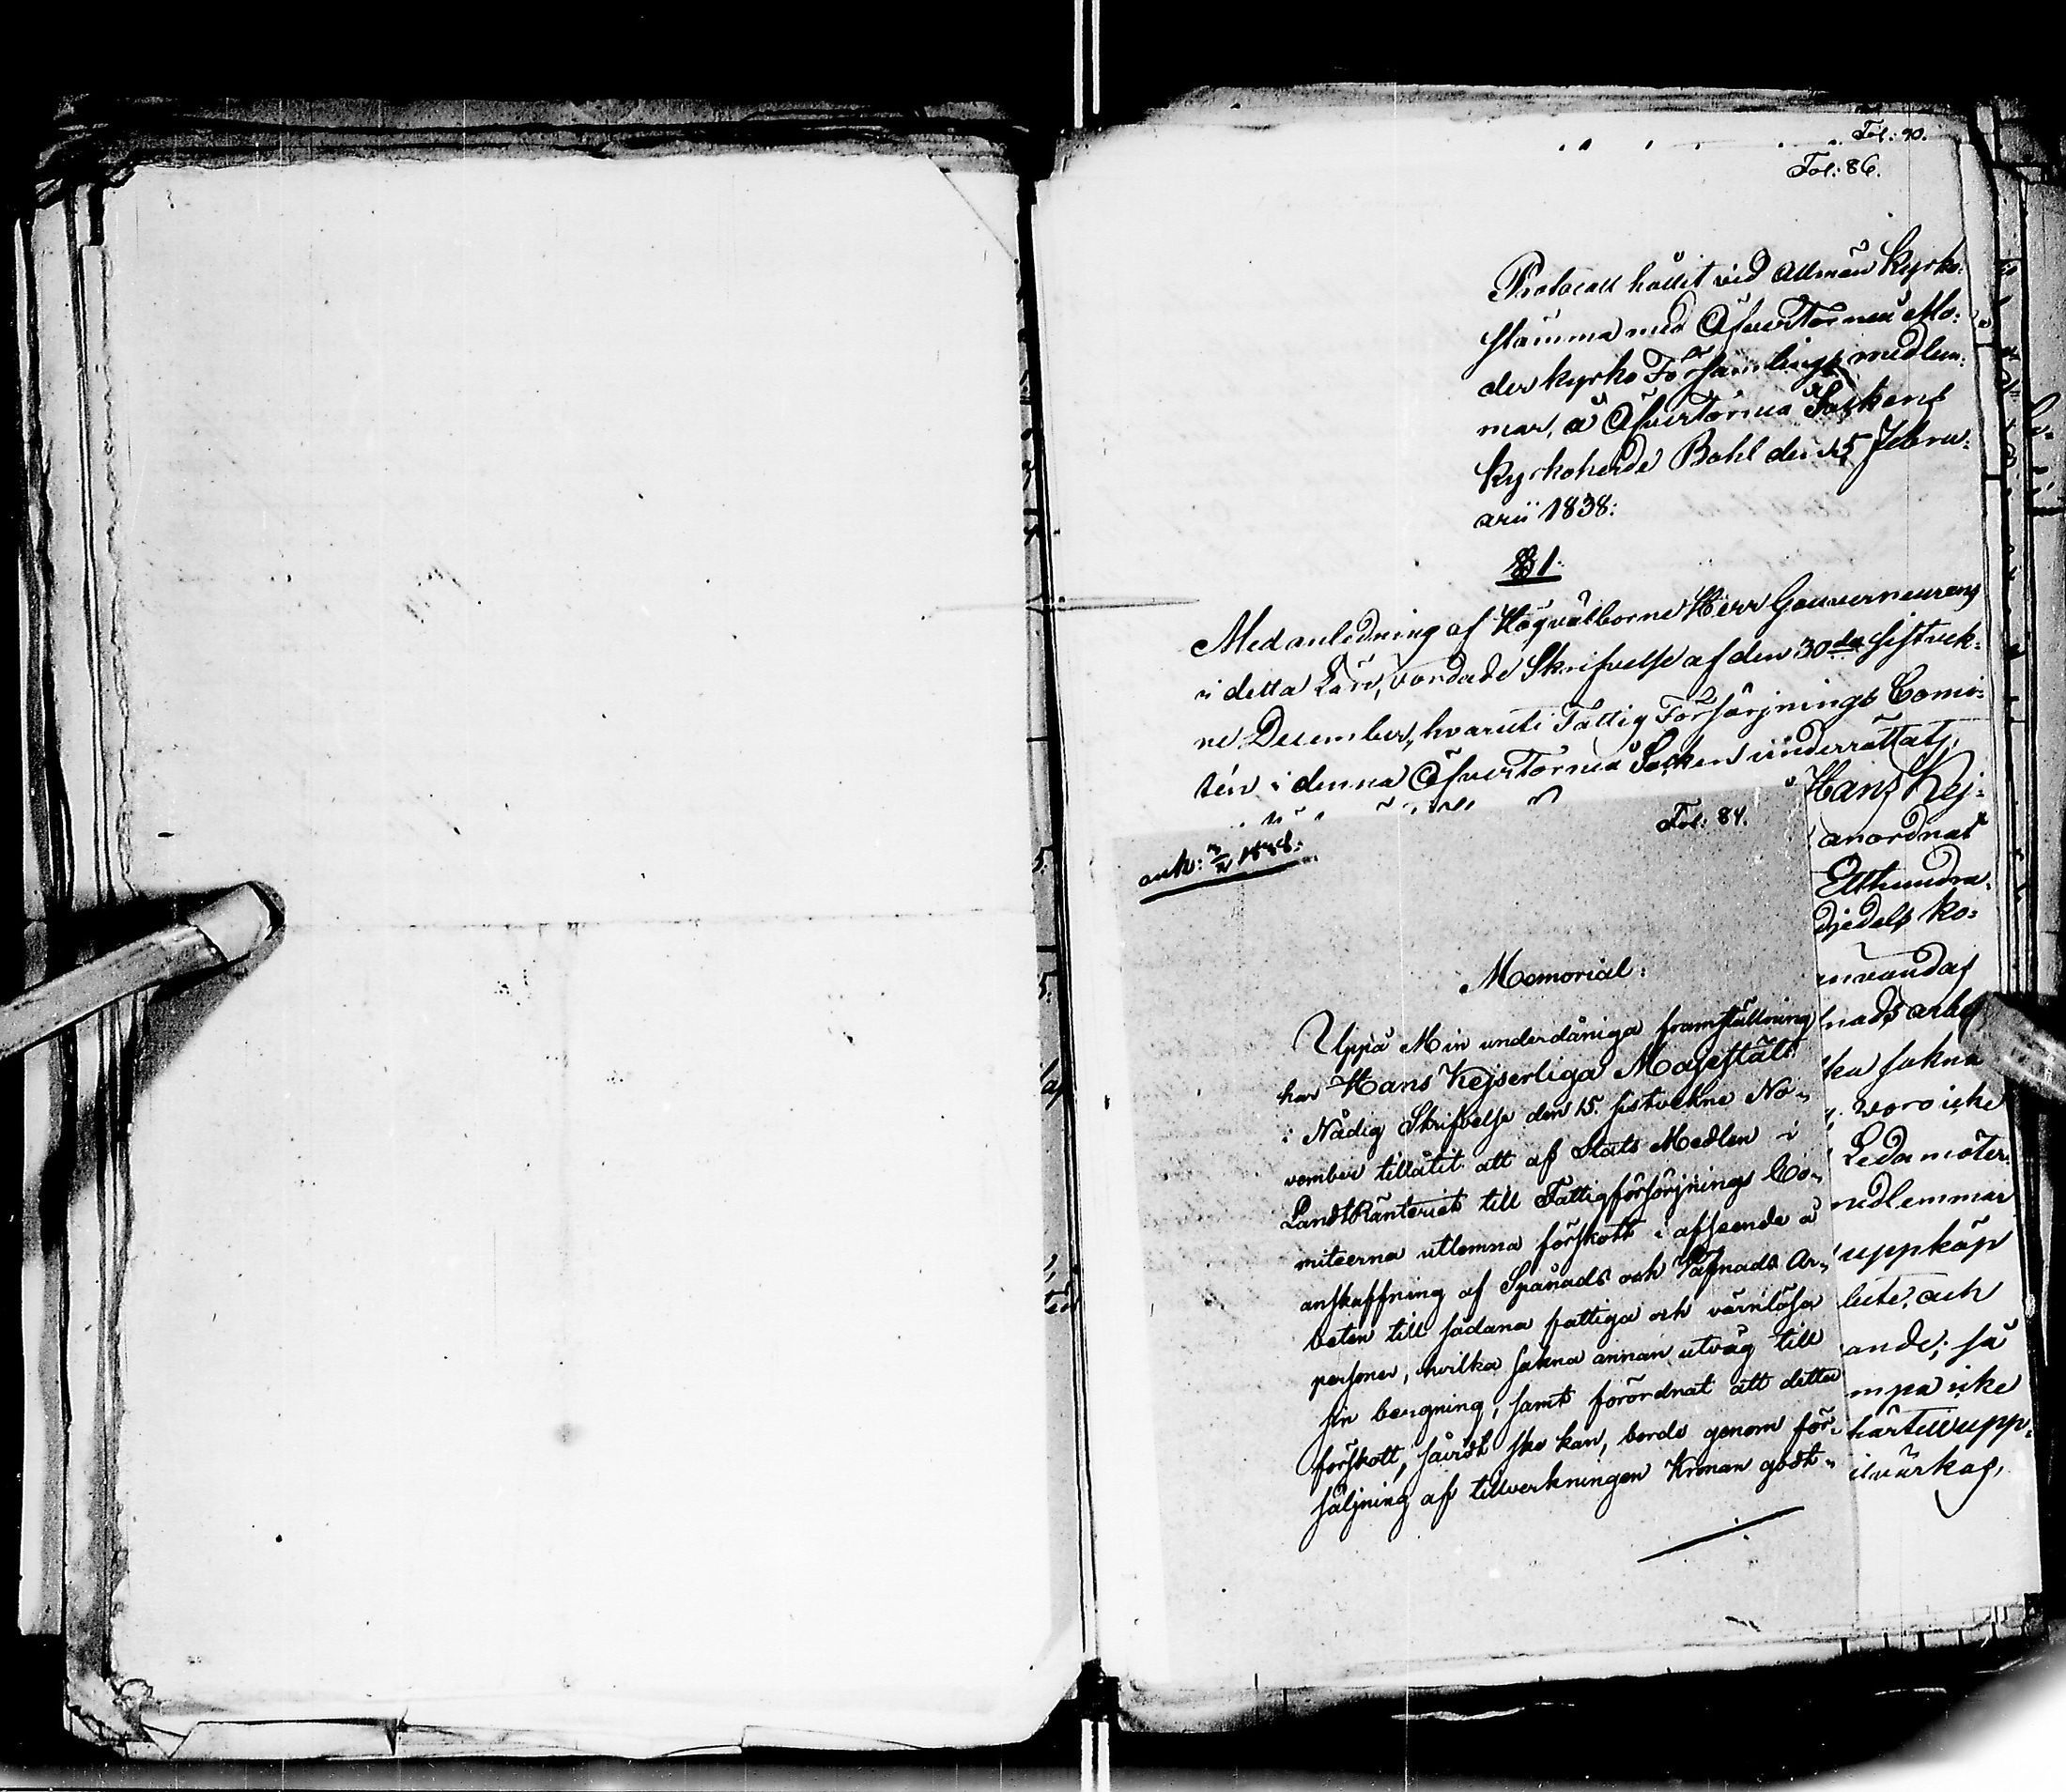 Fol: 90.
Fol: 86.
Protocoll hållit vid Allmän Kyrko-
stämma med Öfvertorneå Mo-
derkyrko Församlings medlem-
mar, å Öfvertorneå Sockens
Kyrkoherde Bohl den 15 Febru-
arii 1838:
§ 1.
Med anledning af Högvälborne Herr Gouverneurens
i detta Län, vördade Skrifvelse af den 30de sistvek-
ne December, hvaruti Fattig Försörjnings Comi-
tén i denna Öfvertorneå Socken underrättats,
Hans Kej-
anordnat
Etthundra
djedels ko-
användas
nads arbe
ka sakna
voro icke
Ledamöter
medlemmar
uppköp
bete, och
ande; så
mpa icke
härtill upp-
ilvärkas,
Fol: 84.
ank: 3/2 1838:
Memorial:
Uppå Min underdåniga framställning
har Hans Kejserliga Majestät
i Nådig Skrifvelse den 15. sistvekne No-
vember tillåtit att af Stats Medlen i
Landtränteriet till Fattigförsörjnings Co-
miteerna utlemna förskott i afseende å
anskaffning af Spånads och Väfnads Ar-
beten till sådana fattiga och värnlösa
personer, hvilka sakna annan utväg till
sin bergning, samt förordnat att detta
förskott, såvidt ske kan, borde genom för-
säljning af tillverkningen Kronan godt-